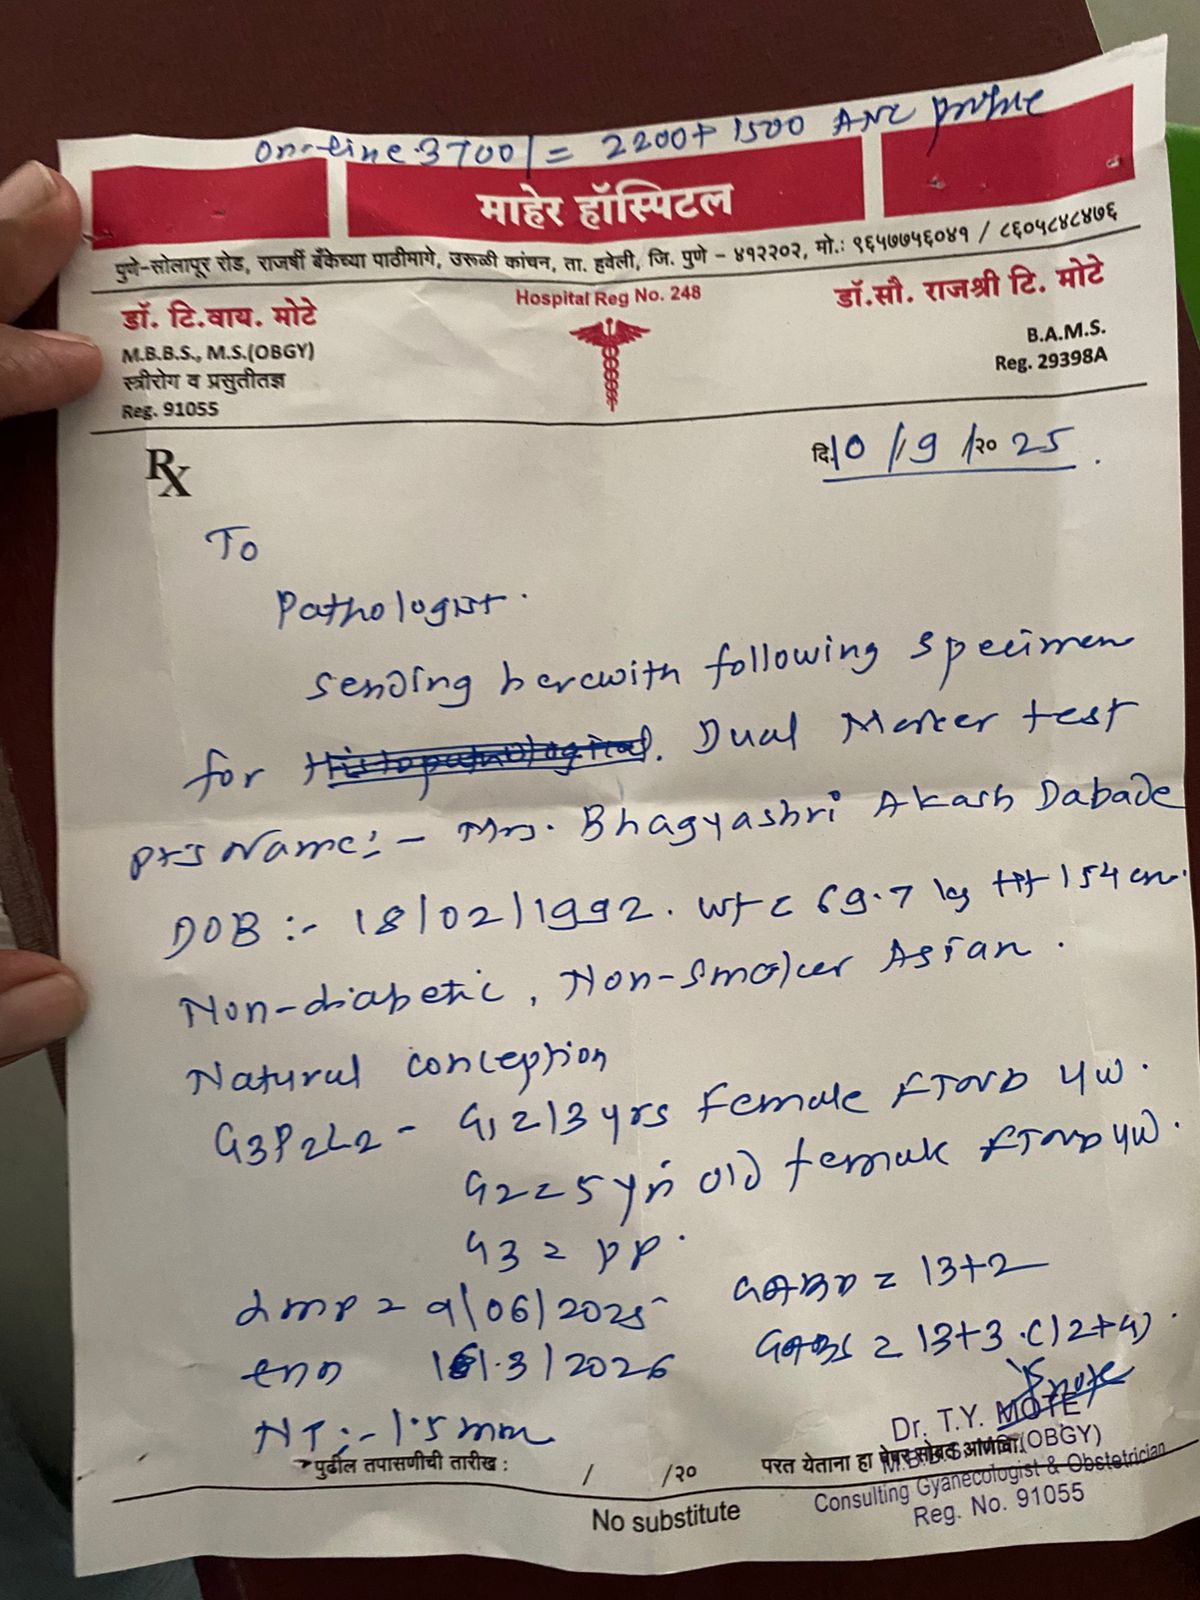 On-line 3700/= 2200+ 1500 ANC profile
माहेर हॉस्पिटल
पुणे-सोलापूर रोड, राजर्षी बँकेच्या पाठीमागे, उरूळी कांचन, ता. हवेली, जि. पुणे - ४१२२०२, मो.: ९६५७७५६०४१ / ८६०५४८४७६
Hospital Reg No. 248
डॉ. टि.वाय. मोटे
M.B.B.S., M.S.(OBGY)
स्त्रीरोग व प्रसुतीतज्ञ
Reg. 91055
डॉ.सौ. राजश्री टि. मोटे
B.A.M.S.
Reg. 29398A
Rx
दि.10/9/२० 25.
To
Pathologist.
Sending herewith following specimen
for Histopathological. Dual Marker test
Pt's Name:- Mrs. Bhagyashri Akash Dabade
DOB :- 18/02/1992. wt = 69.7 kg Ht 154 cm.
Non-diabetic, Non-Smoker Asian.
Natural conception
G3P2L2 - G1 = 13 yrs Female FTNVD YW.
G2 = 5 yrs old female FTNVD YW.
G3 = PP.
LMP = 9/06/2025 GABD = 13+2
EDD 16/.3/2026 GABS = 13+3 .(12+4)
NT :- 1.5 mm
Dr. T.Y. MOTE
M.B.B.S. M.S.(OBGY)
Consulting Gyanecologist & Obstetrician
Reg. No. 91055
पुढील तपासणीची तारीख : / /२० परत येताना हा पेपर सोबत आणावा.
No substitute